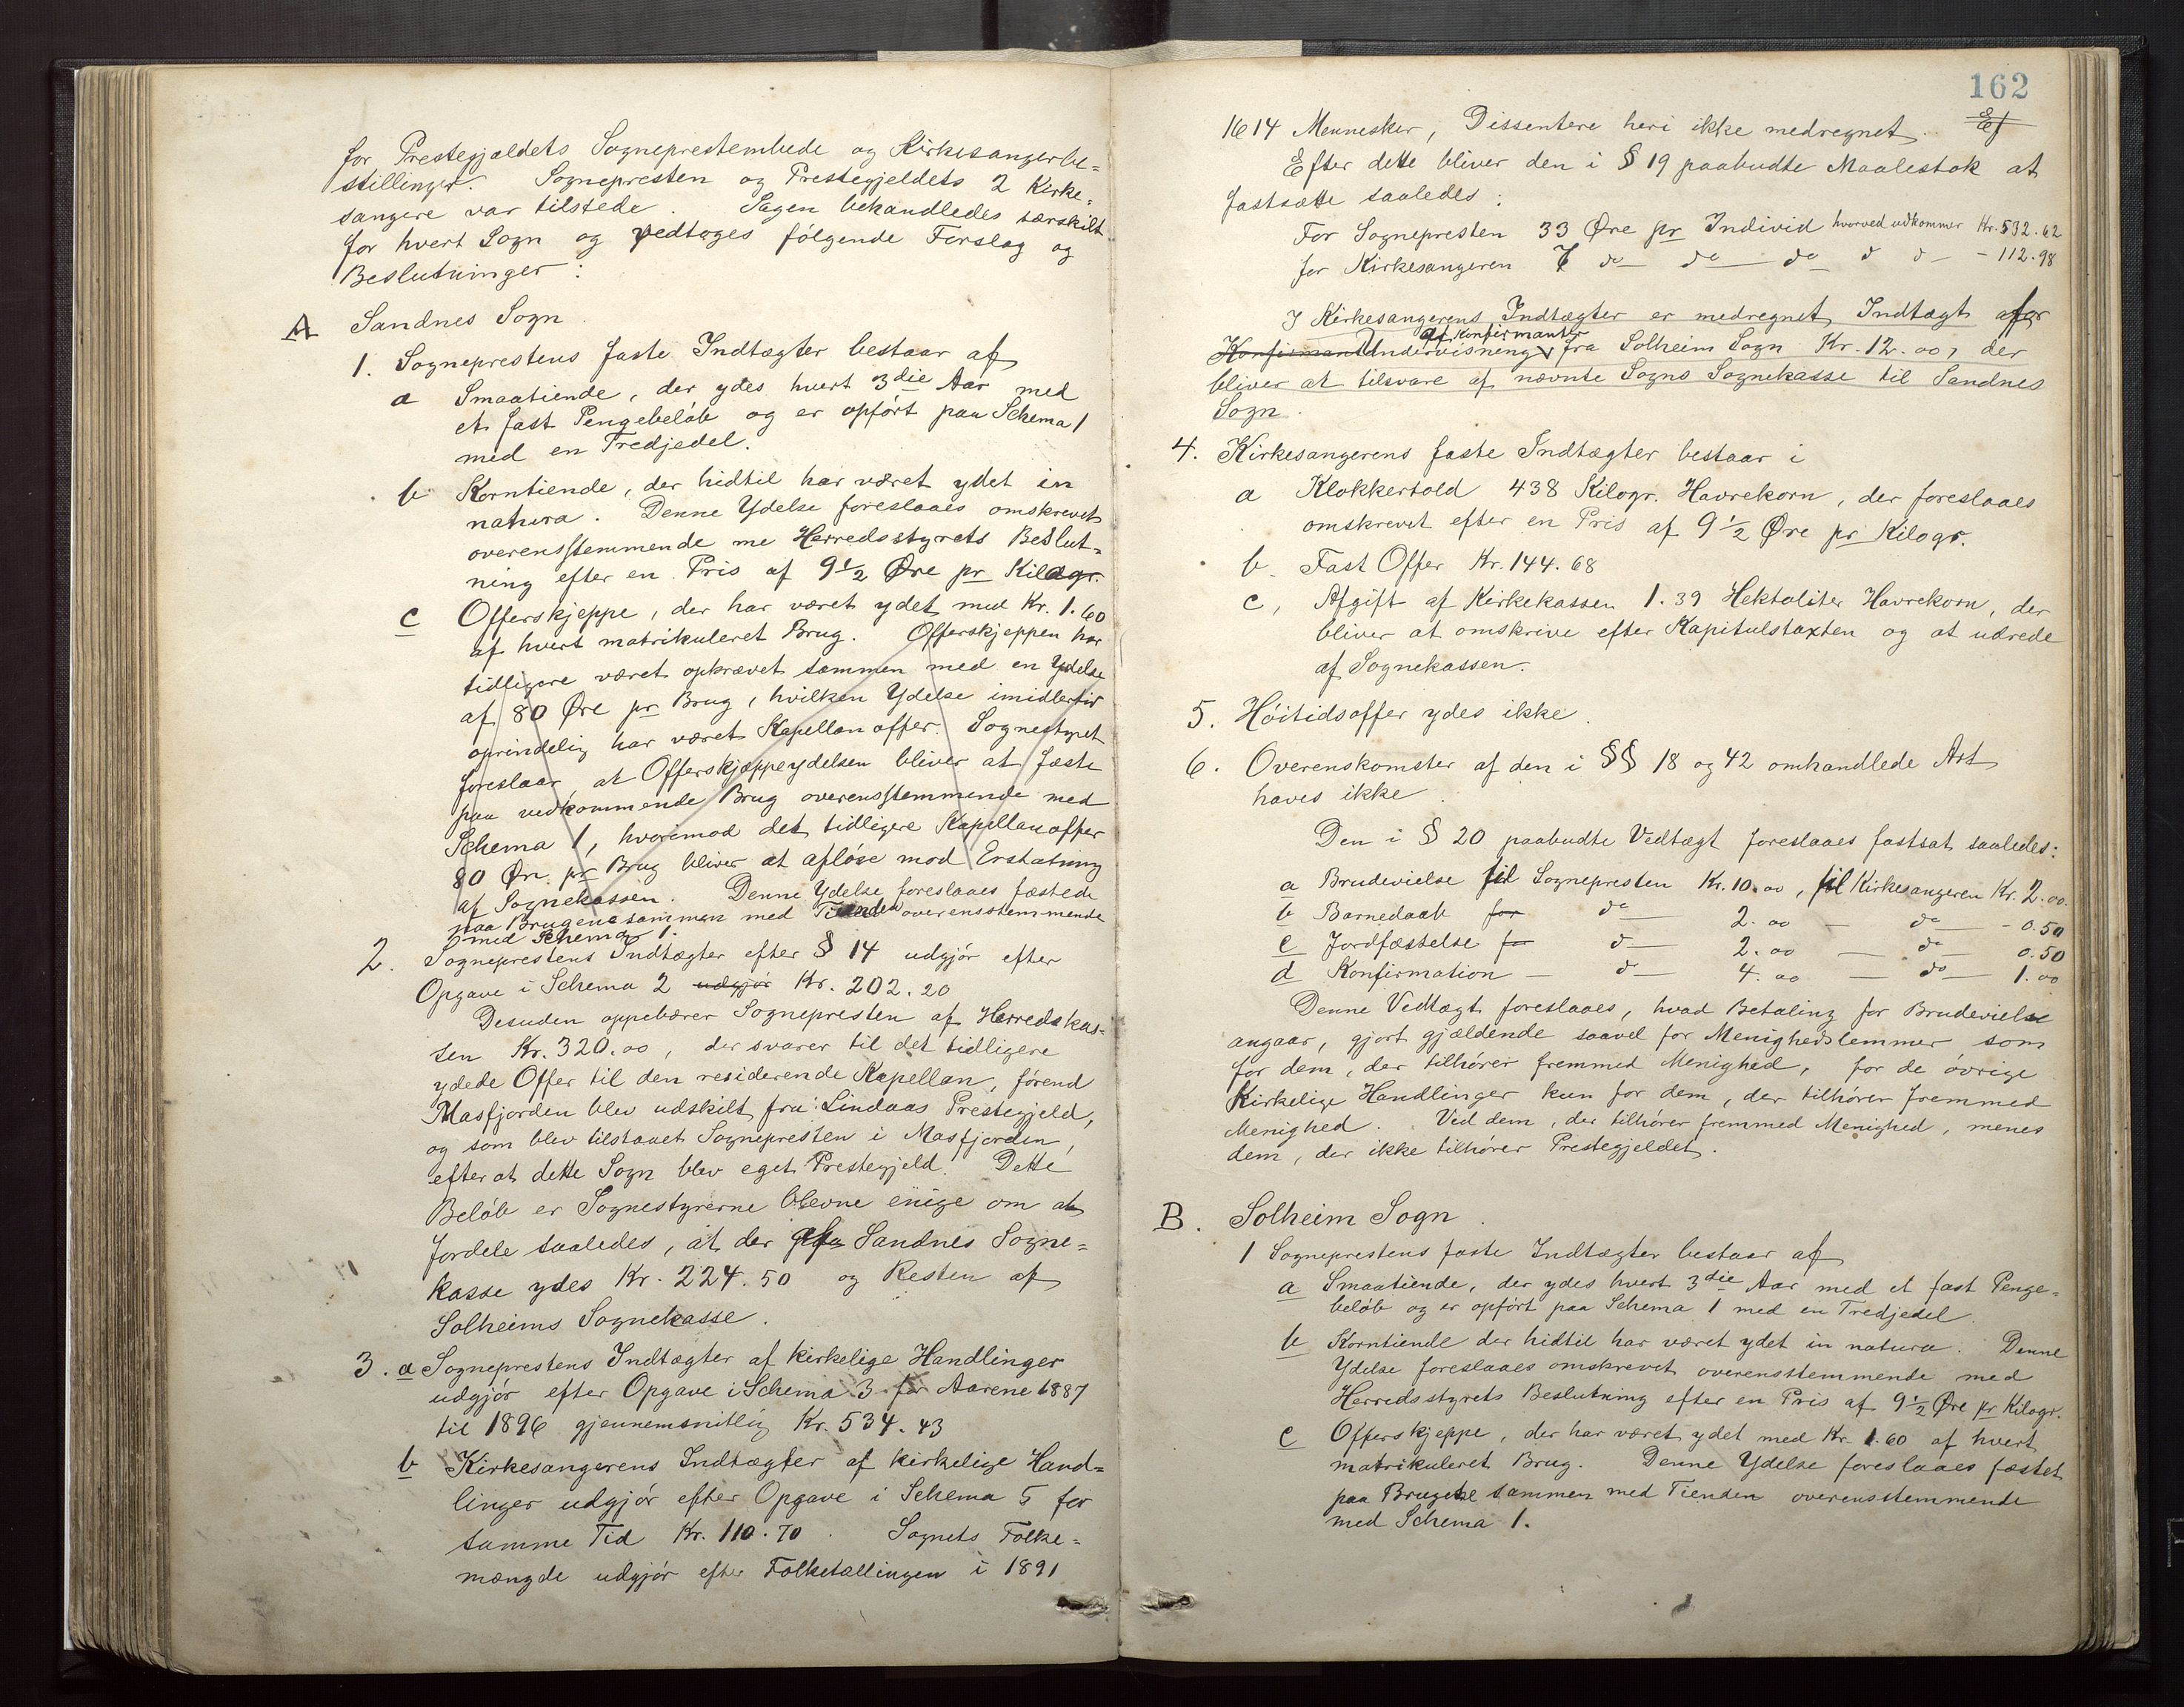 for Prestegjældets Sogneprestembede og Kirkesangerbe=
stillinger. Sognepresten og Prestegjeldets 2 Kirke=
sangere var tilstede. Sagen behandledes særskilt
for hvert Sogn og vedtoges følgende Forslag og
Beslutninger:
A Sandnes Sogn.
1. Sogneprestens faste Indtægter bestaar af
a Smaatiende, der ydes hvert 3die Aar med
et fast Pengebeløb og er opført paa Schema 1
med en Tredjedel.
b Korntiende, der hidtil har været ydet in
natura. Denne Ydelse foreslaaes omskrevet
overensstemmende me Herredsstyrets Beslut=
ning efter en Pris af 9½ Øre pr Kilogr.
c Offerskjeppe, der har været ydet med Kr. 1.60
af hvert matrikuleret Brug. Offerskjeppen har
tidligere været opkrævet sammen med en Ydelse
af 80 Øre pr Brug, hvilken Ydelse imidlertid
oprindelig har været Kapellanoffer. Sognestyret
foreslaar, at Offerskjæppeydelsen bliver at fæste
paa vedkommende Brug overensstemmende med
Schema 1, hvorimod det tidligere Kapellanoffer
80 Øre pr Brug bliver at afløse mod Erstatning
af Sognekassen. Denne Ydelse foreslaaes fæstede
paa Brugene sammen med Tienden overensstemmende
med Schema 1.
2. Sogneprestens Indtægter efter § 14 udgjør efter
Opgave i Schema 2 udgjør Kr. 202.20
Desuden oppebærer Sognepresten af Herredskas=
sen Kr. 320.00, der svarer til det tidligere
ydede Offer til den residerende Kapellan, førend
Masfjorden blev udskilt fra Lindaas Prestegjeld,
og som blev tilstaaet Sognepresten i Masfjorden,
efter at dette Sogn blev eget Prestegjeld. Dette
Beløb er Sognestyrerne blevne enige om at
fordele saaledes, at der af Sandnes Sogne=
kasse ydes Kr. 224.50 og Resten af
Solheims Sognekasse.
3. a Sogneprestens Indtægter af kirkelige Handlinger
udgjør efter Opgave i Schema 3 for Aarene 1887
til 1896 gjennemsnitlig Kr. 534.43
b Kirkesangerens Indtægter af kirkelige Hand=
linger udgjør efter Opgave i Schema 5 for
samme Tid Kr. 110.70. Sognets Folke=
mængde udgjør efter Folketællingen i 1891
162
1614 Mennesker, Dissentere heri ikke medregnet. Ef
Efter dette bliver den i § 19 paabudte Maalestok at
fastsætte saaledes:
For Sognepresten 33 Øre pr Individ hvorved udkommer Kr. 532.62
for Kirkesangeren 7 do do do d d - 112.98
I Kirkesangerens Indtægter er medregnet Indtægt af
Konfirmant Undervisning af Konfirmanter fra Solheim Sogn Kr. 12.00, der
bliver at tilsvare af nævnte Sogns Sognekasse til Sandnes
Sogn.
4. Kirkesangerens faste Indtægter bestaar i
a Klokkertold 438 Kilogr. Havrekorn, der foreslaaes
omskrevet efter en Pris af 9½ Øre pr Kilogr.
b. Fast Offer Kr. 144.68
c, Afgift af Kirkekassen 1.39 Hektoliter Havrekorn, der
bliver at omskrive efter Kapitulstaxten og at udrede
af Sognekassen.
5. Høitidsoffer ydes ikke.
6. Overenskomster af den i §§ 18 og 42 omhandlede Art
haves ikke.
Den i § 20 paabudte Vedtægt foreslaaes fastsat saaledes:
a Brudevielse til Sognepresten Kr. 10.00, til Kirkesangeren Kr. 2.00.
b Barnedaab for do 2.00 - do - 0.50
c Jordfæstelse for do 2.00 - do 0.50
d Konfirmation - do 4.00 - do 1.00
Denne Vedtægt foreslaaes, hvad Betaling for Brudevielse
angaar, gjort gjældende saavel for Menighedslemmer som
for dem, der tilhører fremmed Menighed, for de øvrige
Kirkelige Handlinger kun for dem, der tilhører fremmed
Menighed. Ved dem, der tilhører fremmed Menighed, menes
dem, der ikke tilhører Prestegjeldet.
B. Solheim Sogn.
1 Sogneprestens faste Indtægter bestaar af
a Smaatiende, der ydes hvert 3die Aar med et fast Penge=
beløb og er opført paa Schema 1 med en Tredjedel.
b Korntiende der hidtil har været ydet in natura. Denne
Ydelse foreslaaes omskrevet overensstemmende med
Herredsstyrets Beslutning efter en Pris af 9½ Øre pr Kilogr.
c Offerskjeppe, der har været ydet med Kr 1.60 af hvert
matrikuleret Brug. Denne Ydelse foreslaaes fæstet
paa Brugene sammen med Tienden overensstemmende
med Schema 1.